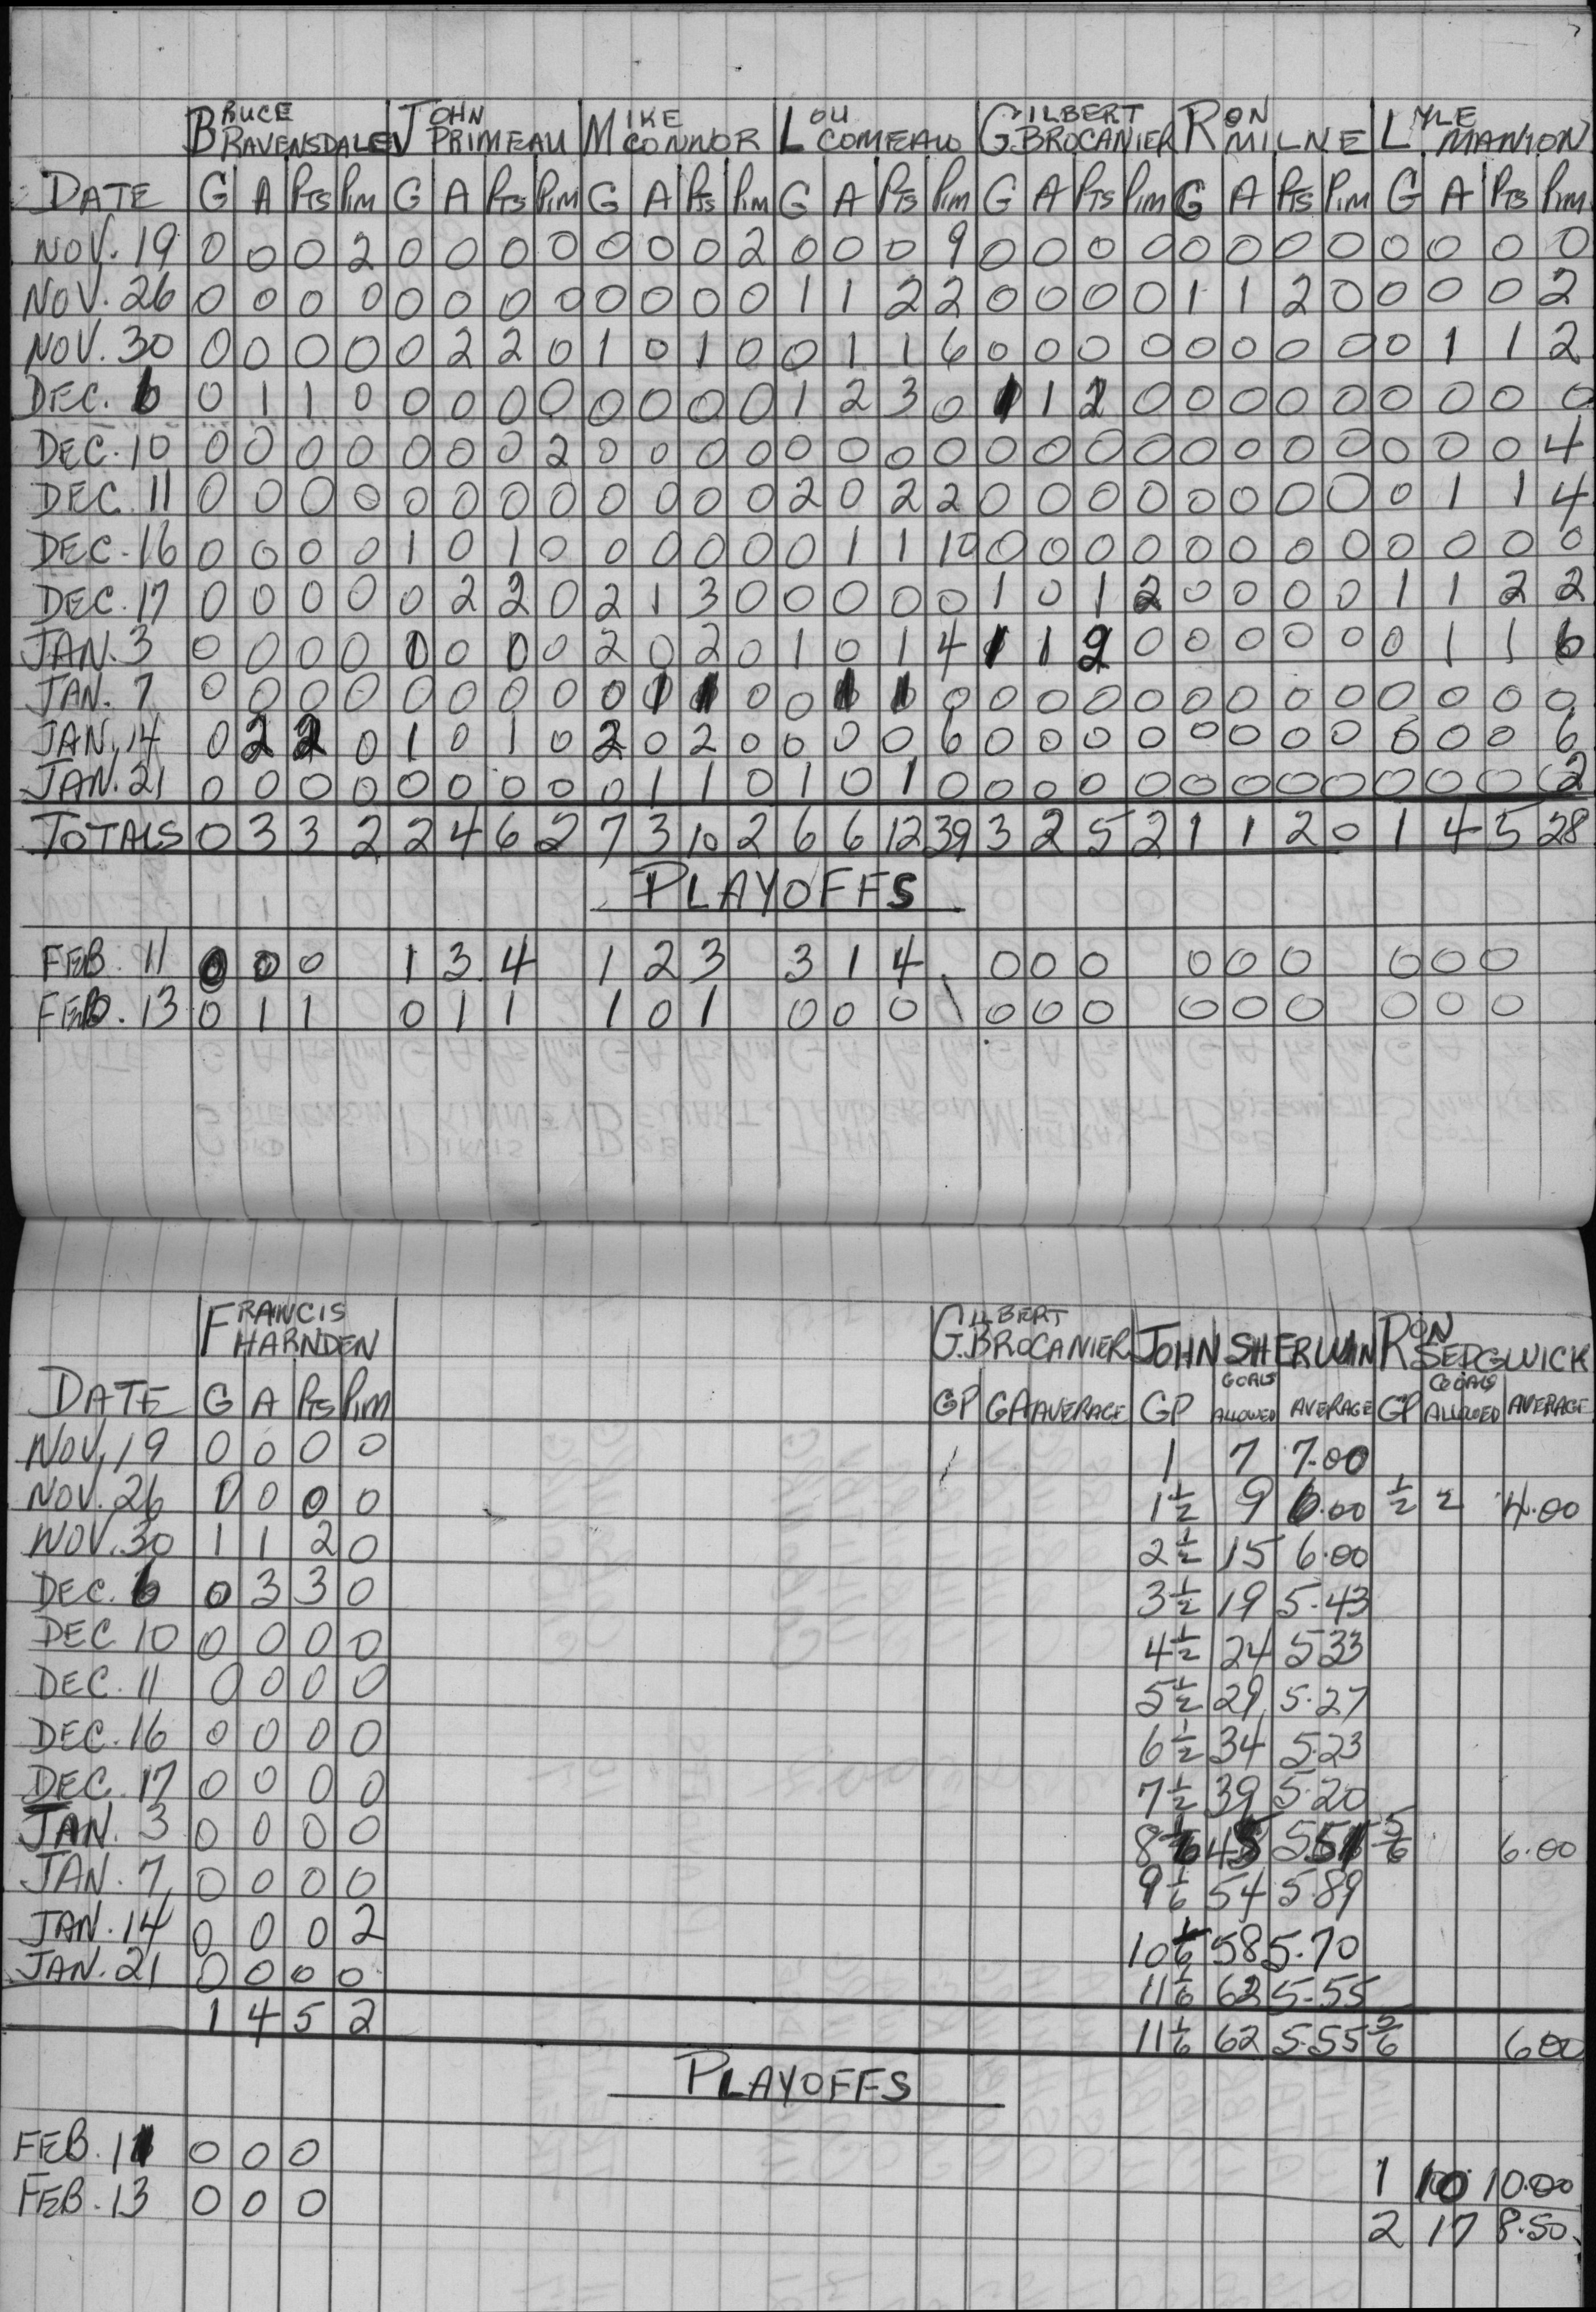 BRUCE RAVENSDALE JOHN PRIMEAU MIKE CONNOR LOU COMEAU GILBERT G. BROCANIER RON MILNE LYLE MANION
DATE G A PTS PIM G A PTS PIM G A PTS PIM G A PTS PIM G A PTS PIM G A PTS PIM G A PTS PIM
NOV. 19 0 0 0 2 0 0 0 0 0 0 0 2 0 0 0 9 0 0 0 0 0 0 0 0 0 0 0 0
NOV. 26 0 0 0 0 0 0 0 0 0 0 0 0 1 1 2 2 0 0 0 0 1 1 2 0 0 0 0 2
NOV. 30 0 0 0 0 0 2 2 0 1 0 1 0 0 1 1 6 0 0 0 0 0 0 0 0 0 1 1 2
DEC. 6 0 1 1 0 0 0 0 0 0 0 0 0 1 2 3 0 1 1 2 0 0 0 0 0 0 0 0 0
DEC. 10 0 0 0 0 0 0 0 2 0 0 0 0 0 0 0 0 0 0 0 0 0 0 0 0 0 0 0 4
DEC. 11 0 0 0 0 0 0 0 0 0 0 0 0 2 0 2 2 0 0 0 0 0 0 0 0 0 1 1 4
DEC. 16 0 0 0 0 1 0 1 0 0 0 0 0 0 1 1 10 0 0 0 0 0 0 0 0 0 0 0 0
DEC. 17 0 0 0 0 0 2 2 0 2 1 3 0 0 0 0 0 1 0 1 2 0 0 0 0 1 1 2 2
JAN. 3 0 0 0 0 0 0 0 0 2 0 2 0 1 0 1 4 1 1 2 0 0 0 0 0 0 1 1 6
JAN. 7 0 0 0 0 0 0 0 0 0 1 1 0 0 1 1 0 0 0 0 0 0 0 0 0 0 0 0 0
JAN. 14 0 2 2 0 1 0 1 0 2 0 2 0 0 0 0 6 0 0 0 0 0 0 0 0 0 0 0 6
JAN. 21 0 0 0 0 0 0 0 0 0 1 1 0 1 0 1 0 0 0 0 0 0 0 0 0 0 0 0 2
TOTALS 0 3 3 2 2 4 6 2 7 3 10 2 6 6 12 39 3 2 5 2 1 1 2 0 1 4 5 28
PLAYOFFS
FEB. 11 0 0 0 1 3 4 1 2 3 3 1 4 0 0 0 0 0 0 0 0 0
FEB. 13 0 1 1 0 1 1 1 0 1 0 0 0 0 0 0 0 0 0 0 0 0
FRANCIS HARNDEN GILBERT G. BROCANIER JOHN SHERWIN RON SEDGWICK
DATE G A PTS PIM GP GA AVERAGE GP GOALS ALLOWED AVERAGE GP GOALS ALLOWED AVERAGE
NOV. 19 0 0 0 0 1 7 7.00
NOV. 26 0 0 0 0 1 1/2 9 6.00 1/2 2 4.00
NOV. 30 1 1 2 0 2 1/2 15 6.00
DEC. 6 0 3 3 0 3 1/2 19 5.43
DEC 10 0 0 0 0 4 1/2 24 5.33
DEC. 11 0 0 0 0 5 1/2 29 5.27
DEC. 16 0 0 0 0 6 1/2 34 5.23
DEC. 17 0 0 0 0 7 1/2 39 5.20
JAN. 3 0 0 0 0 8 1/6 45 5.51 5/6 6.00
JAN. 7 0 0 0 0 9 1/6 54 5.89
JAN. 14 0 0 0 2 10 1/6 58 5.70
JAN. 21 0 0 0 0 11 1/6 62 5.55
1 4 5 2 11 1/6 62 5.55 5/6 6.00
PLAYOFFS
FEB. 11 0 0 0 1 10 10.00
FEB. 13 0 0 0 2 17 8.50